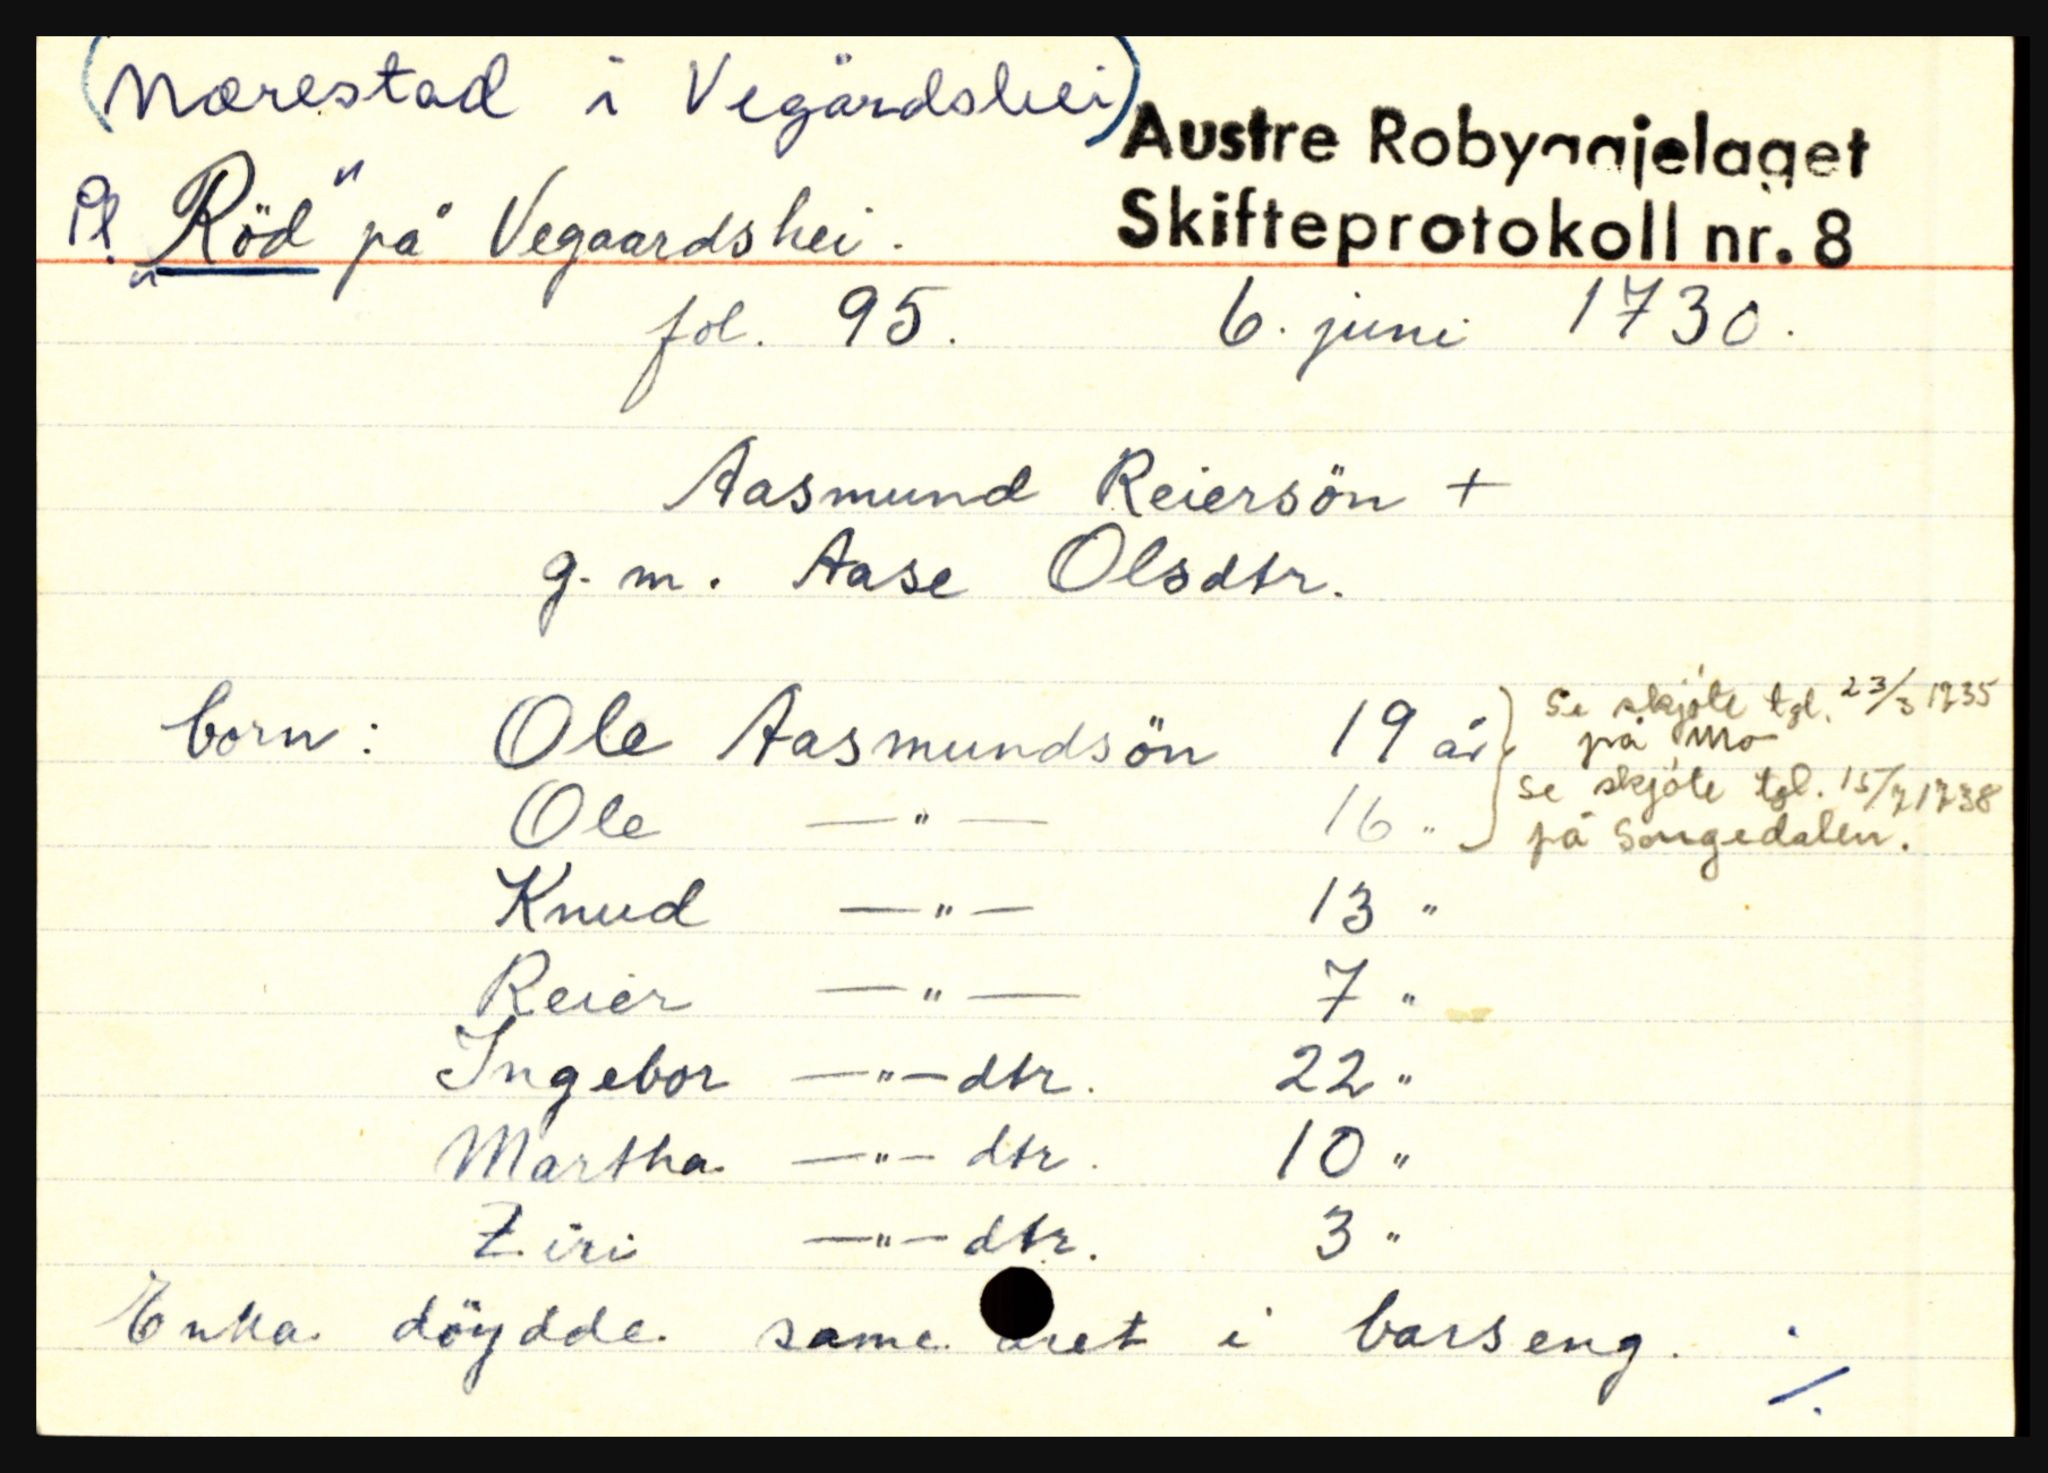 (Nærestad i Vegårdshei)
Austre Robyggjelaget
Pl. "Röd" på Vegaardshei.
Skifteprotokoll nr. 8
fol. 95. 6. juni 1730.
Aasmund Reiersön +
g. m. Aase Olsdtr.
born: Ole Aasmundsön 19 år
Se skjöte tgl. 23/3 1735
på Mo
Ole —"— 16 "
se skjöte tgl. 15/7 1738
på Songedalen.
Knud —"— 13 "
Reier —"— 7 "
Ingebor —"— dtr. 22 "
Martha —"— dtr. 10 "
Ziri —"— dtr. 3 "
Enka döydde same året i barseng. ./.